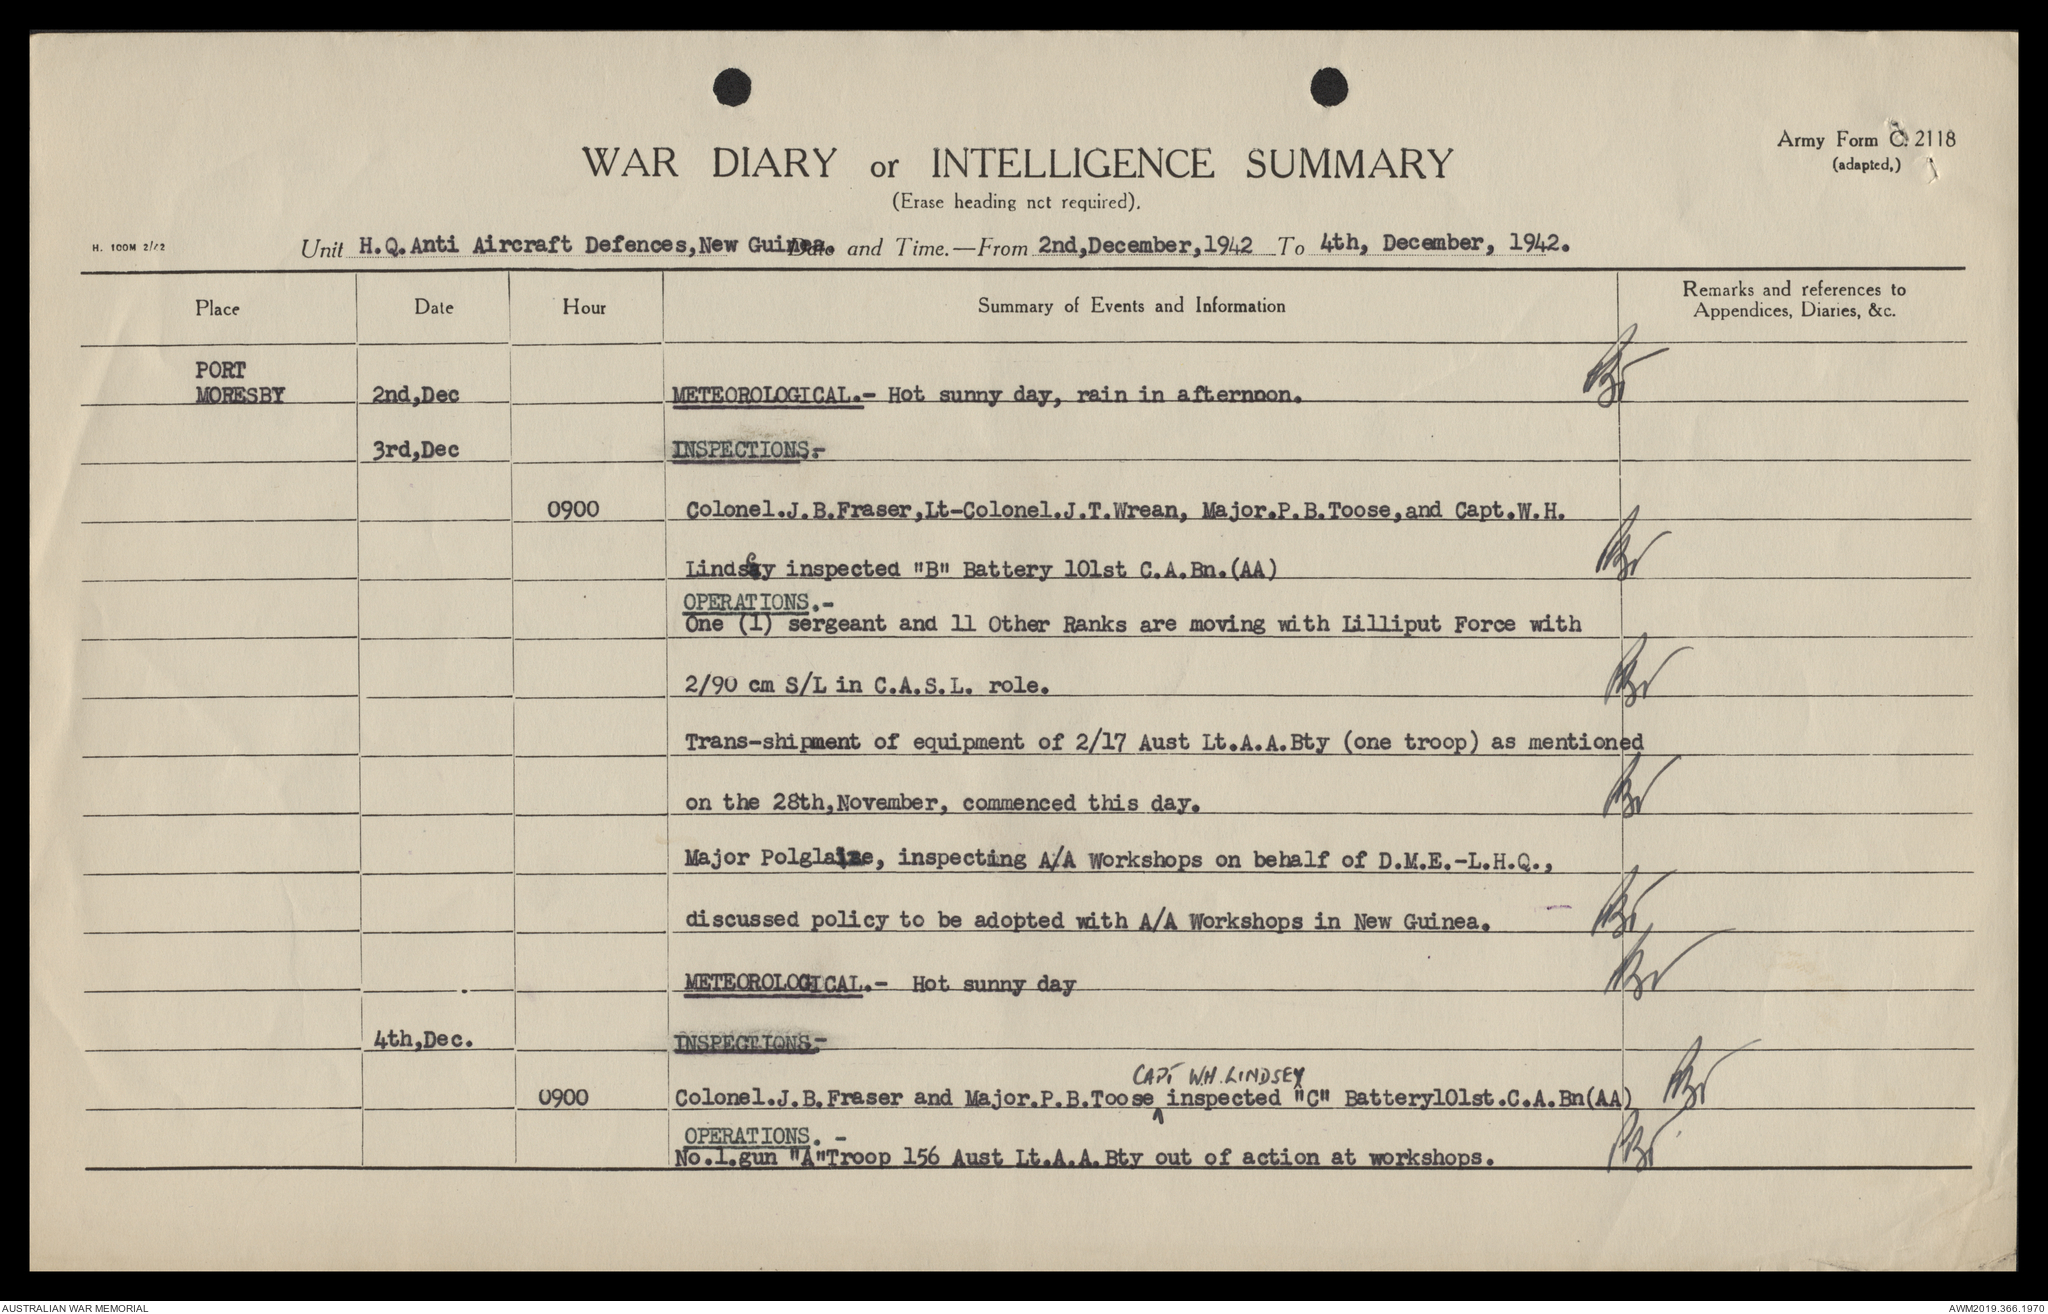 Army Form C. 2118
(adapted,)
WAR DIARY or INTELLIGENCE SUMMARY
(Erase heading nct required).
H. 100M 2/42
Unit H.Q.Anti Aircraft Defences,New Guinea. Date and Time.—From 2nd,December,1942 To 4th, December, 1942.
Place Date Hour Summary of Events and Information Remarks and references to
Appendices, Diaries, &c.
PORT
MORESBY 2nd,Dec METEOROLOGICAL.- Hot sunny day, rain in afternoon.
3rd,Dec INSPECTIONS:-
0900 Colonel.J.B.Fraser,Lt-Colonel.J.T.Wrean, Major.P.B.Toose,and Capt.W.H.
Lindsey inspected "B" Battery 101st C.A.Bn.(AA)
OPERATIONS.-
One (1) sergeant and 11 Other Ranks are moving with Lilliput Force with
2/90 cm S/L in C.A.S.L. role.
Trans-shipment of equipment of 2/17 Aust Lt.A.A.Bty (one troop) as mentioned
on the 28th,November, commenced this day.
Major Polglaze, inspecting A/A Workshops on behalf of D.M.E.-L.H.Q.,
discussed policy to be adopted with A/A Workshops in New Guinea.
METEOROLOGICAL.- Hot sunny day
4th,Dec. INSPECTIONS-
CAPT W.H. LINDSEY
0900 Colonel.J.B.Fraser and Major.P.B.Toose inspected "C" Battery101st.C.A.Bn(AA)
OPERATIONS. -
No.1.gun "A"Troop 156 Aust Lt.A.A.Bty out of action at workshops.
AUSTRALIAN WAR MEMORIAL AWM2019.366.1970